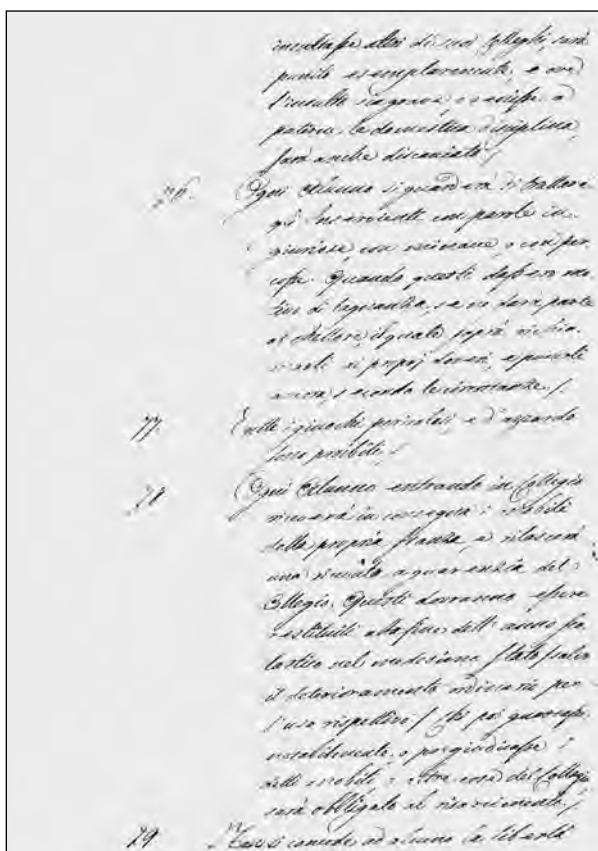 insultasse altri di suoi Colleghi, sarà
punito esemplarmente, e ove
l'insulto sia grave, o
la domestica disciplina,
sarà anche discacciato /
76. Ogni Alunno si guarderà di trattare
gl' Inservienti con parole in-
giuriose, con minacce, o con per-
cosse. Quando questi dassero mo-
tivo di lagnanza, se ne darà parte
al Rettore, il quale saprà richia-
marli ai proprj doveri, e punirli
ancora, secondo le circostanze. /
77. Tutti i giuochi pericolosi, e d'azzardo
sono proibiti. /
78 Ogni Alunno entrando in Collegio
riceverà in consegna i mobili
della propria stanza, e rilascerà
una ricevuta, a guarenzia del
Collegio. Questi dovranno essere
restituiti alla fine dell' anno sco-
lastico nel medesimo stato / salvo
il deterioramento ordinario per
l'uso rispettivo / Chi poi guastasse
notabilmente, o pregiudicasse i
detti mobili, o altra cosa del Collegio
sarà obbligato al risarcimento. /
79 Non si concede ad alcuno la libertà